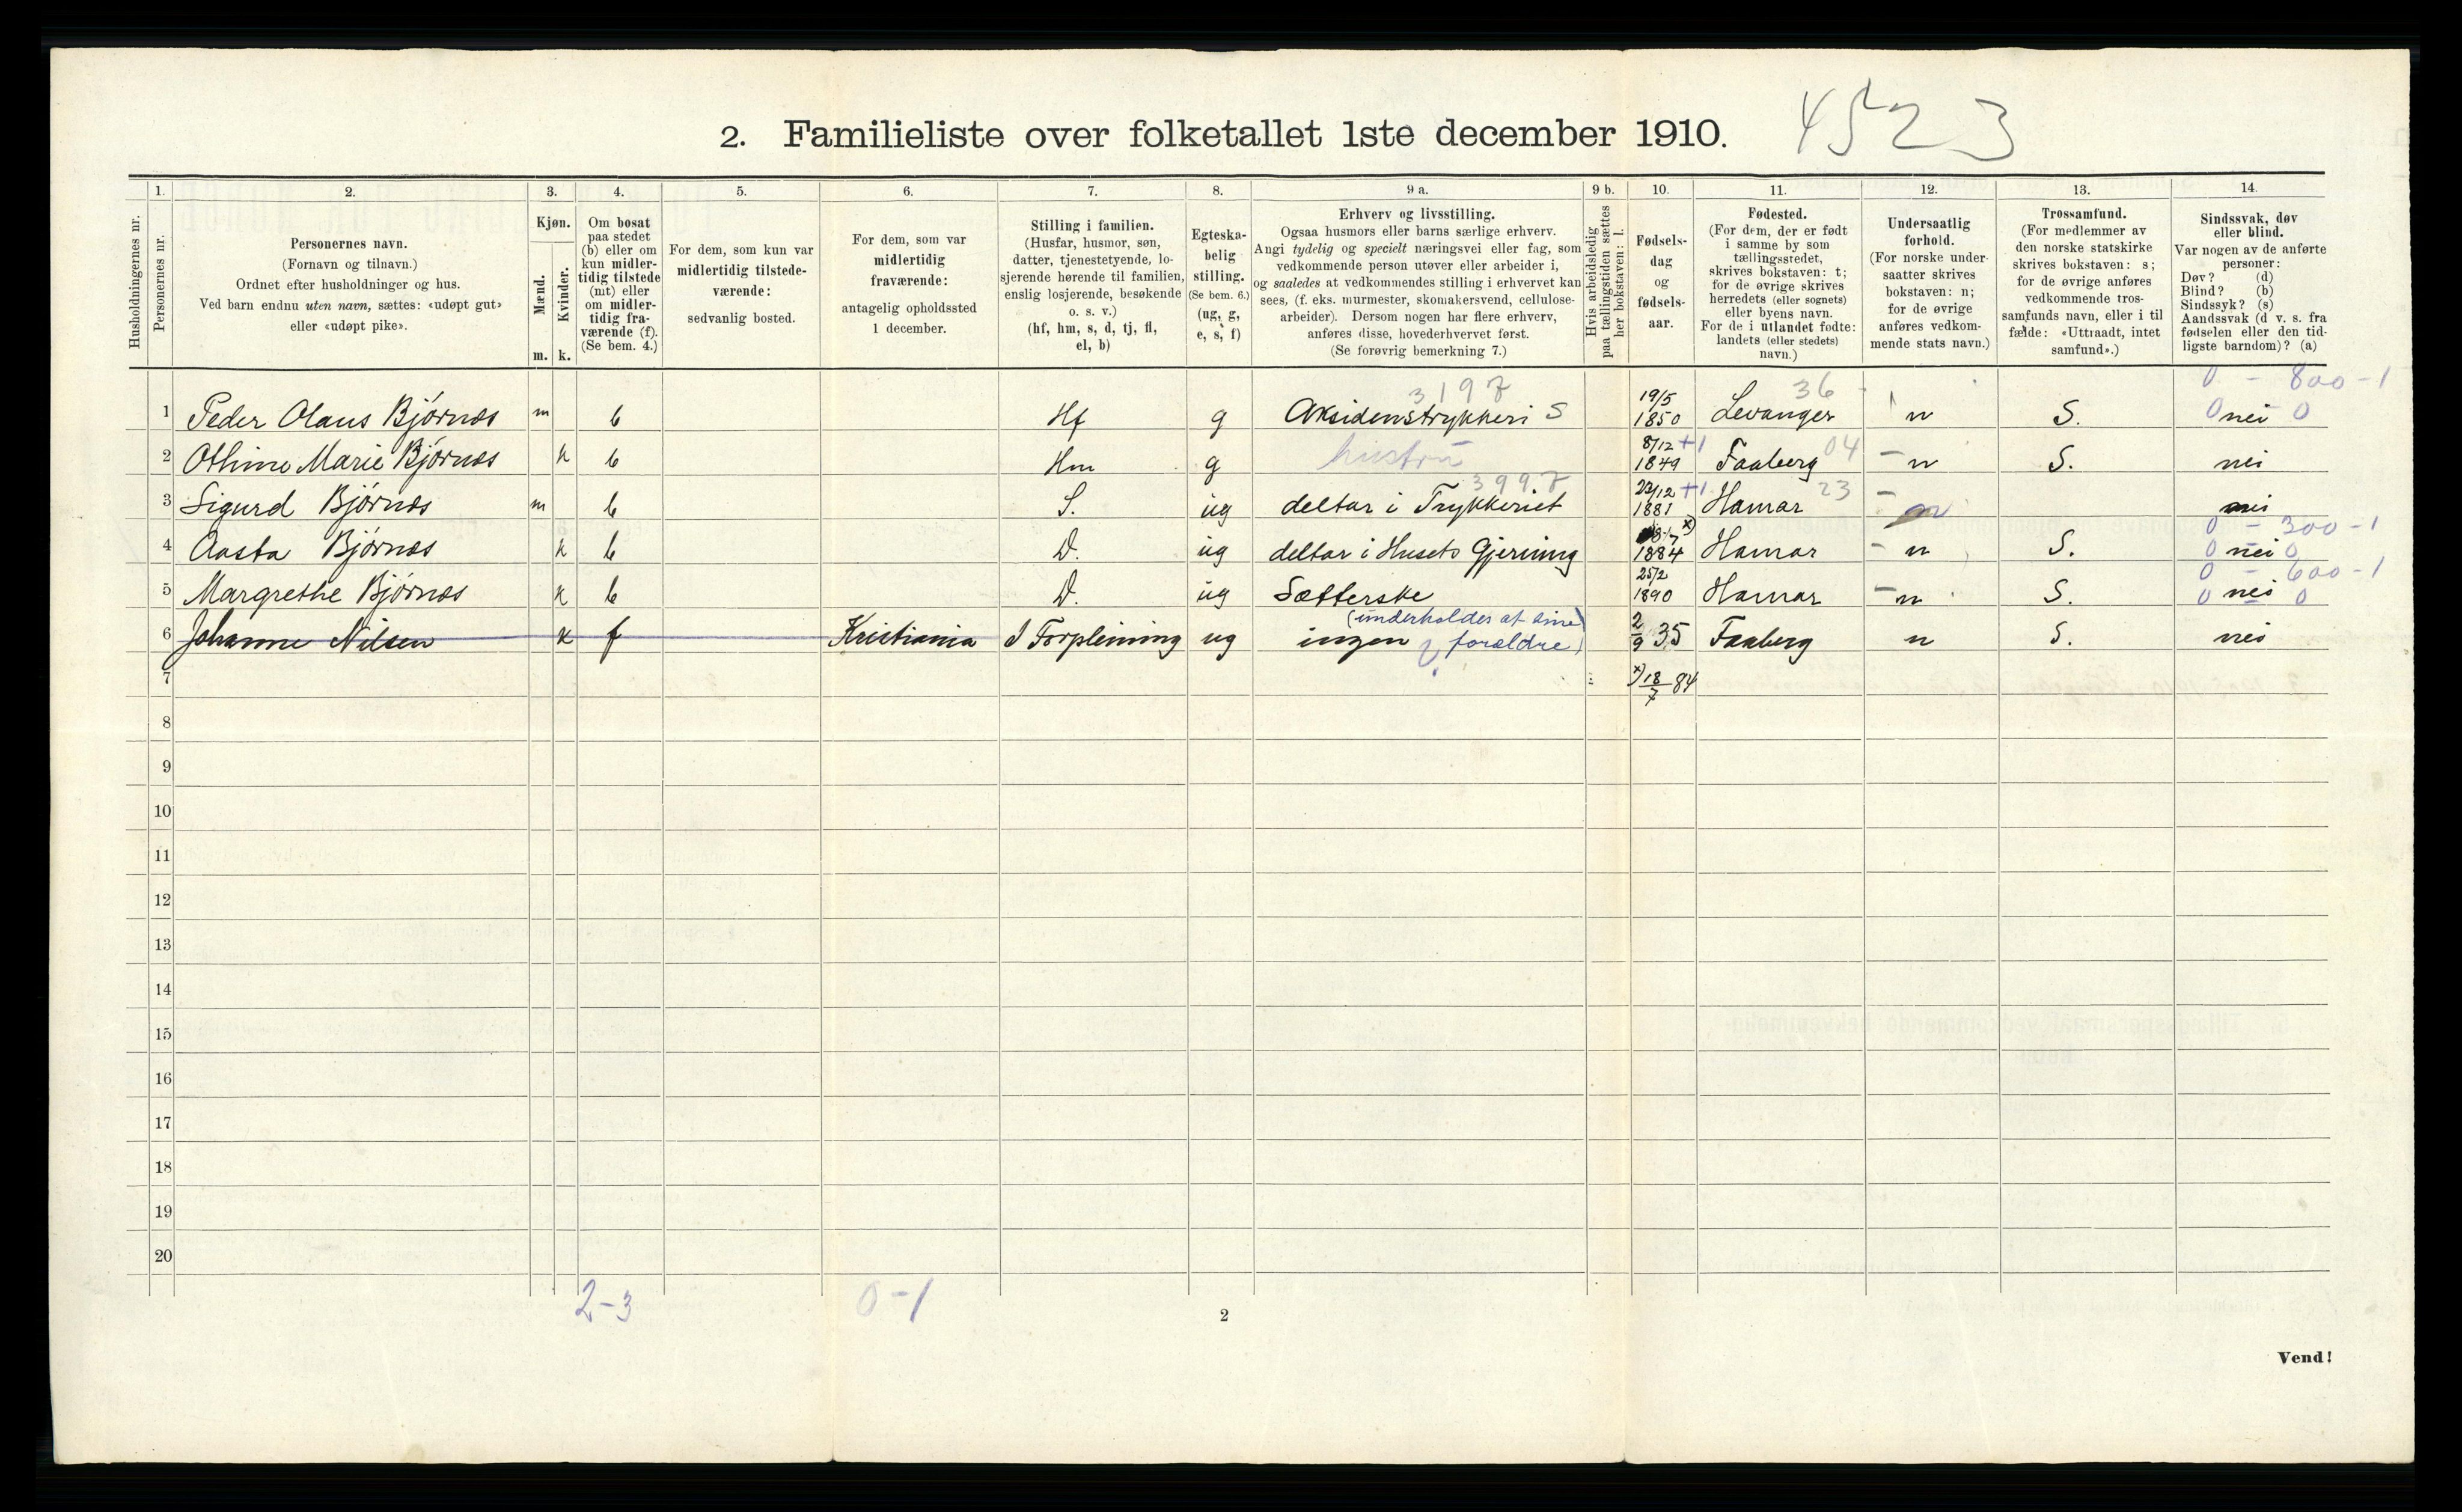 2. Familieliste over folketallet 1ste december 1910. 4523
1. 2. 3. 4. 5. 6. 7. 8. 9 a. 9 b. 10. 11. 12. 13. 14.
Husholdningernes nr.
Personernes nr.
Personernes navn.
(Fornavn og tilnavn.)
Ordnet efter husholdninger og hus.
Ved barn endnu uten navn, sættes: «udøpt gut»
eller «udøpt pike».
Kjøn.
Mænd.
Kvinder.
m. k.
Om bosat
paa stedet
(b) eller om
kun midler-
tidig tilstede
(mt) eller
om midler-
tidig fra-
værende (f).
(Se bem. 4.)
For dem, som kun var
midlertidig tilstede-
værende:
sedvanlig bosted.
For dem, som var
midlertidig
fraværende:
antagelig opholdssted
1 december.
Stilling i familien.
(Husfar, husmor, søn,
datter, tjenestetyende, lo-
sjerende hørende til familien,
enslig losjerende, besøkende
o. s. v.)
(hf, hm, s, d, tj, fl,
el, b)
Egteska-
belig
stilling.
(Se bem. 6.)
(ug, g,
e, s, f)
Erhverv og livsstilling.
Ogsaa husmors eller barns særlige erhverv.
Angi tydelig og specielt næringsvei eller fag, som
vedkommende person utøver eller arbeider i,
og saaledes at vedkommendes stilling i erhvervet kan
sees, (f. eks. murmester, skomakersvend, cellulose-
arbeider). Dersom nogen har flere erhverv,
anføres disse, hovederhvervet først.
(Se forøvrig bemerkning 7.)
Hvis arbeidsledig
paa tællingstiden sættes
her bokstaven: l.
Fødsels-
dag
og
fødsels-
aar.
Fødested.
(For dem, der er født
i samme by som
tællingsstedet,
skrives bokstaven: t;
for de øvrige skrives
herredets (eller sognets)
eller byens navn.
For de i utlandet fødte:
landets (eller stedets)
navn.)
Undersaatlig
forhold.
(For norske under-
saatter skrives
bokstaven: n;
for de øvrige
anføres vedkom-
mende stats navn.)
Trossamfund.
(For medlemmer av
den norske statskirke
skrives bokstaven: s;
for de øvrige anføres
vedkommende tros-
samfunds navn, eller i til
fælde: «Uttraadt, intet
samfund».)
Sindssvak, døv
eller blind.
Var nogen av de anførte
personer:
Døv? (d)
Blind? (b)
Sindssyk? (s)
Aandssvak (d v. s. fra
fødselen eller den tid-
ligste barndom)? (a)
3197 36 0 - 800-1
1 Peder Olaus Bjørnæs m b Hf g Aksidenstrykkeri S 19/5 1850 Levanger n S. 0 nei 0
2 Othine Marie Bjørnæs k b Hm g hustru 8/12 +1 1849 Faaberg 04 - n S. nei
3997
3 Sigurd Bjørnæs m b S. ug deltar i Trykkeriet 23/12 +1 1881 Hamar 23 - n nei
0 - 300-1
4 Aasta Bjørnæs k b D. ug deltar i Husets Gjerning x) 1884 Hamar - n S. 0 nei 0
0 - 600-1
5 Margrethe Bjørnæs k b D. ug Sætterske 25/2 1890 Hamar - n S. 0 nei 0
(underholdes af sine
6 Johanne Nilsen k f Kristiania I Forpleining ug ingen forældre) 2/9 35 Faaberg n S. nei
7 x) 18/7 84
8
9
10
11
12
13
14
15
16
17
18
19
20
2-3 0-1
2
Vend!